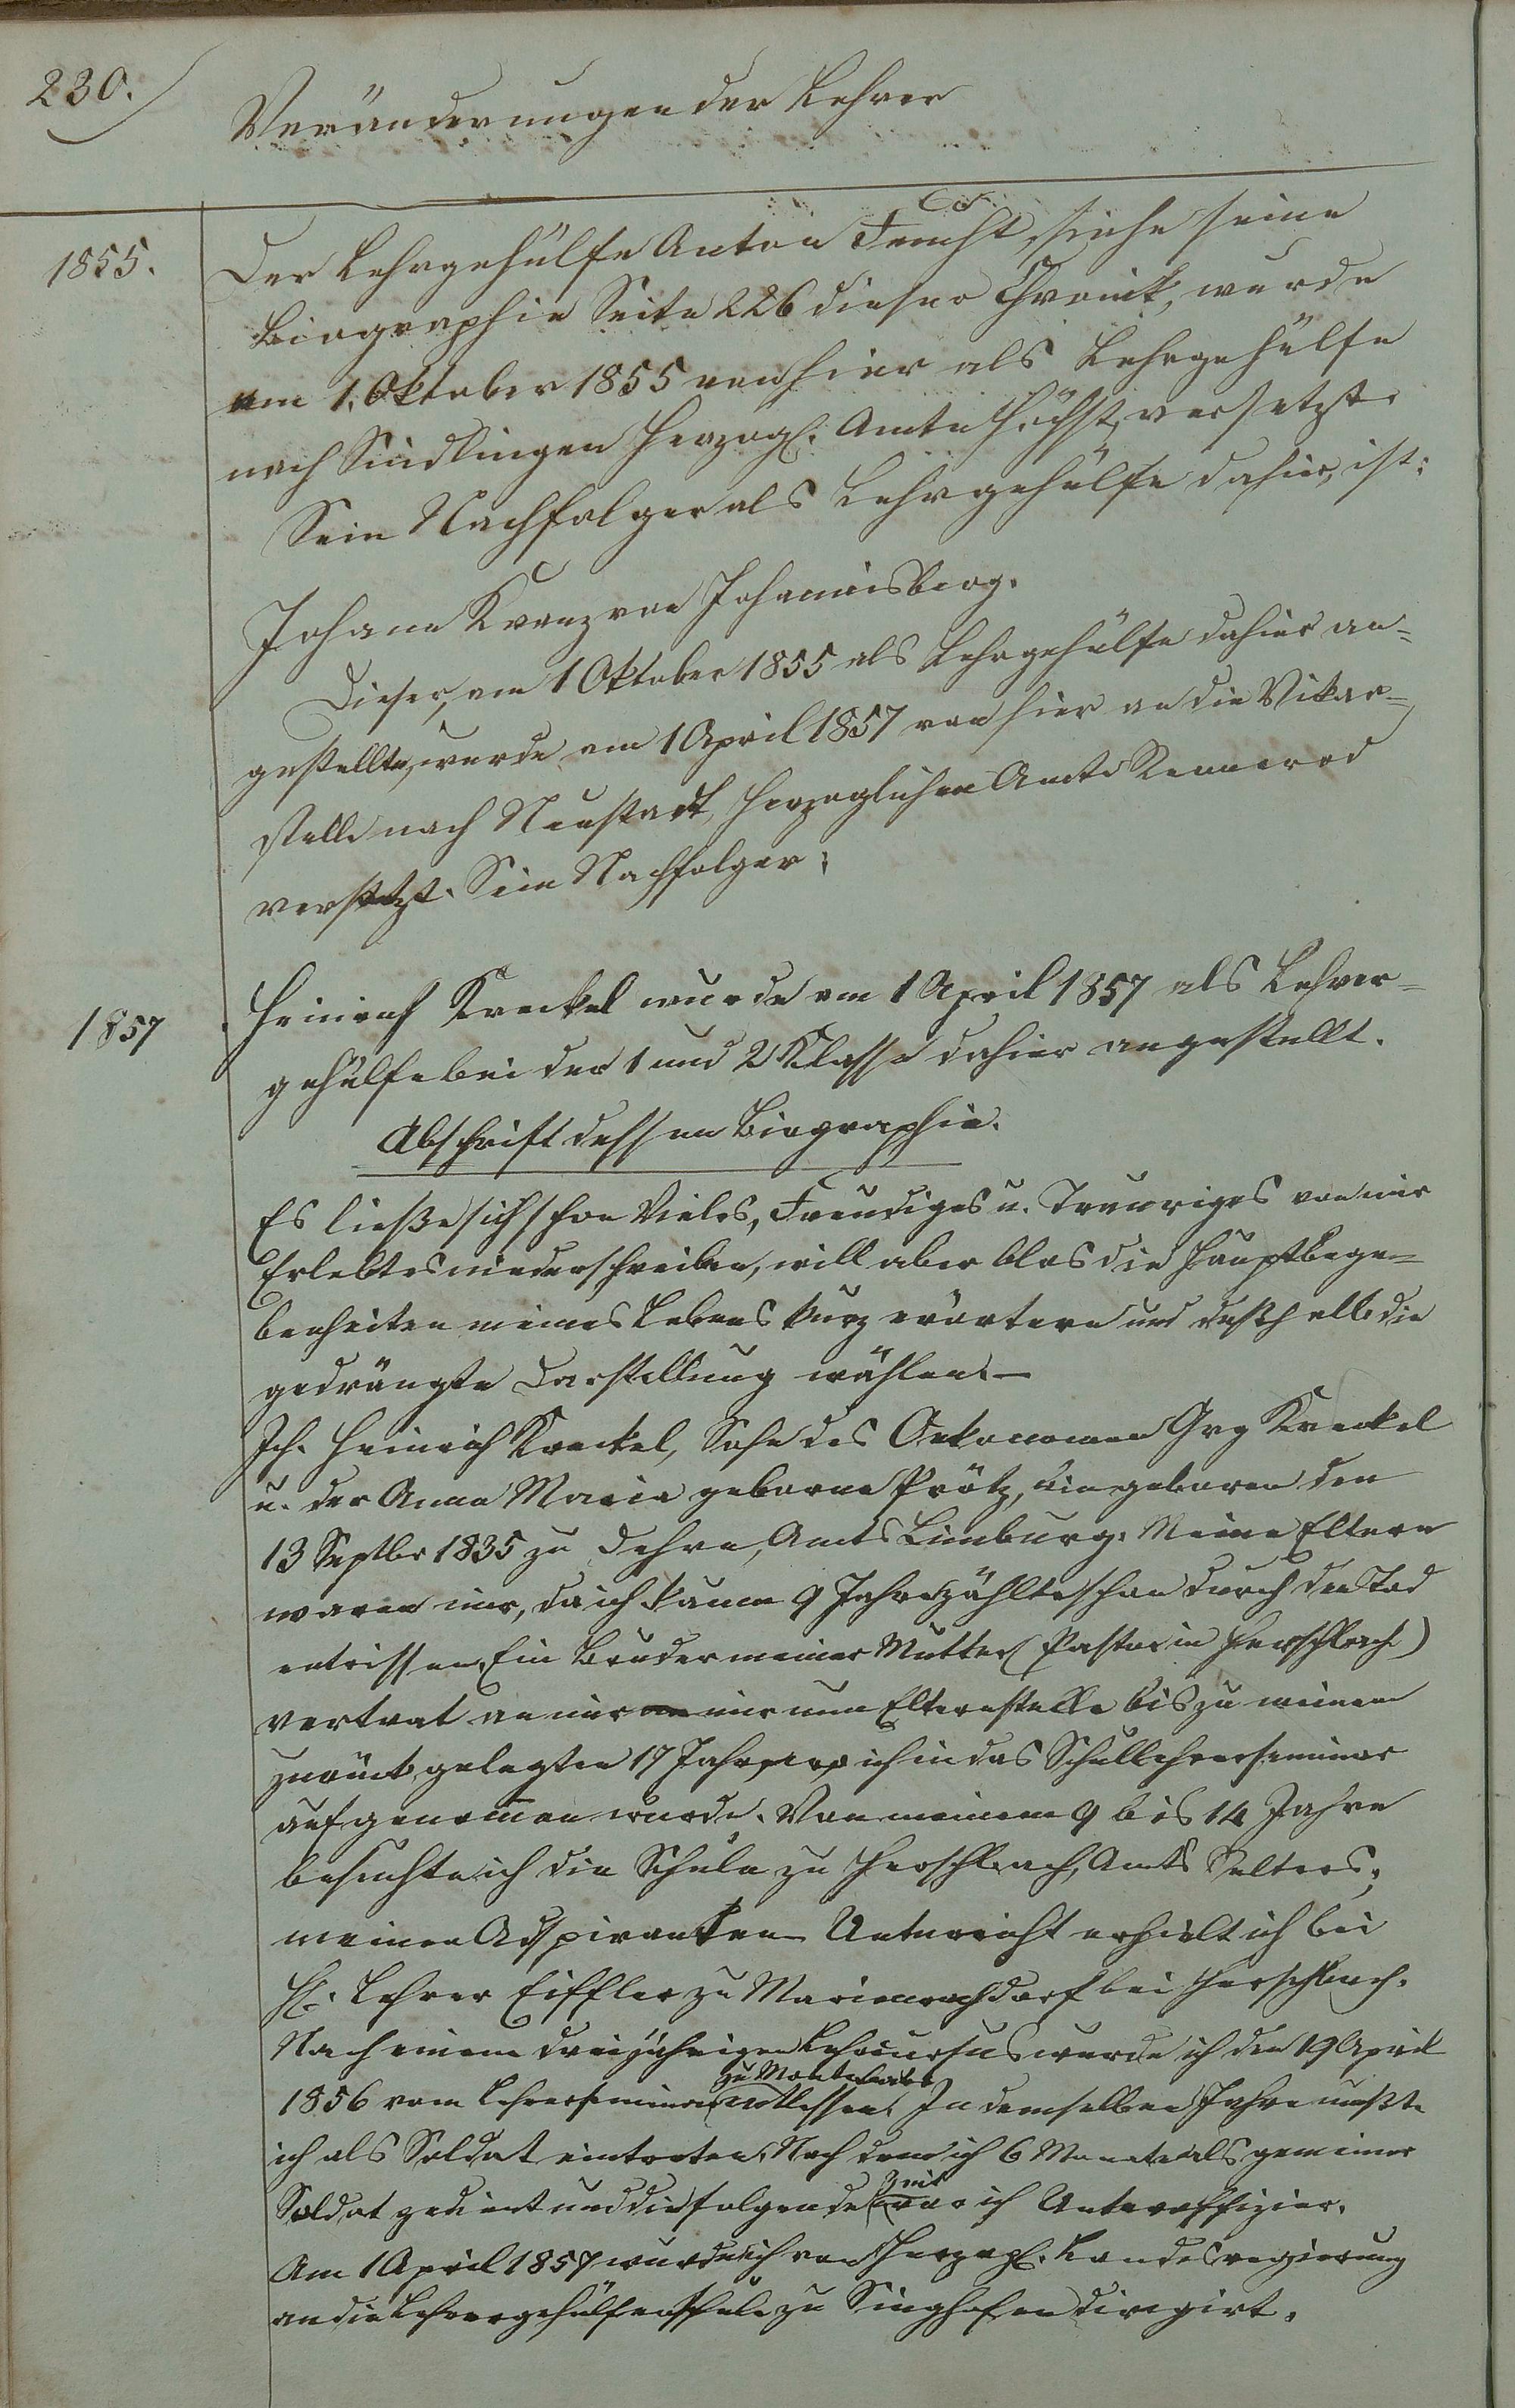 230.
Veränderungen der Lehrer
1855.
Der Lehrgehülfe Anton Feucht, siehe seine
Biographie Seite 226 dieser Chronik, wurde
am 1. Oktober 1855 von hier als Lehrgehülfe
nach Sindlingen Herzogl. Amte Höchst, versetzt.
Sein Nachfolger als Lehrgehülfe dahier, ist:
Johann Kranz von Johannisberg.
Dieser, am 1 Oktober 1855 als Lehrgehülfe dahier an=
gestellte, wurde am 1 April 1857 von hier an die Vikar=
stelle nach Neustadt, Herzoglichen Amts Rennerod
versetzt. Sein Nachfolger:
1857
Heinrich Kreckel wurde am 1 April 1857 als Lehrer=
gehülfe bei der 1 und 2 Klasse dahier angestellt.
Abschrift dessen Biographie.
Es ließe sich schon Vieles, Freudiges u. Trauriges von mir
Erlebtes niederschreiben, will aber blos die Hauptbege=
benheiten meines Lebens kurz erörtern und deßhalb die
gedrängte Darstellung wählen. —
Ich. Heinrich Kreckel, Sohn des Oekonomen Grg Kreckel
u. der Anna Maria geborne Prötz, bin geboren den
13 Septbr 1835 zu Dehrn, Amts Limburg. Meine Eltern
waren mir, da ich kaum 9 Jahre zählte schon durch den Tod
entrissen. Ein Bruder meiner Mutter (Pastor in Herschbach)
vertrat an mir mir nun Elternstelle bis zu meinem
zurückgelegten 17 Jahr, wo ich in das Schullehrerseminar
aufgenommen wurde. Von meinem 9 bis 14 Jahre
besuchte ich die Schule zu Herschbach, Amts Selters;
meinen Adspiranten Unterricht erhielt ich bei
H. Lehrer Eiffler zu Marienrachdorf bei Herschbach.
Nach einem dreijährigen Lehrcursus wurde ich den 19 April
zu Montabaur
1856 vom Lehrerseminar entlassen. In demselben Jahre mußte
ich als Soldat eintreten. Nach dem ich 6 Monate als gemeiner
Zeit
Soldat gedient und die folgende war ich Unteroffizier.
Am 1 April 1857 wurde ich von Herzogl. Landesregierung
an die Lehrergehülfenschule zu Singhofen dirigirt.